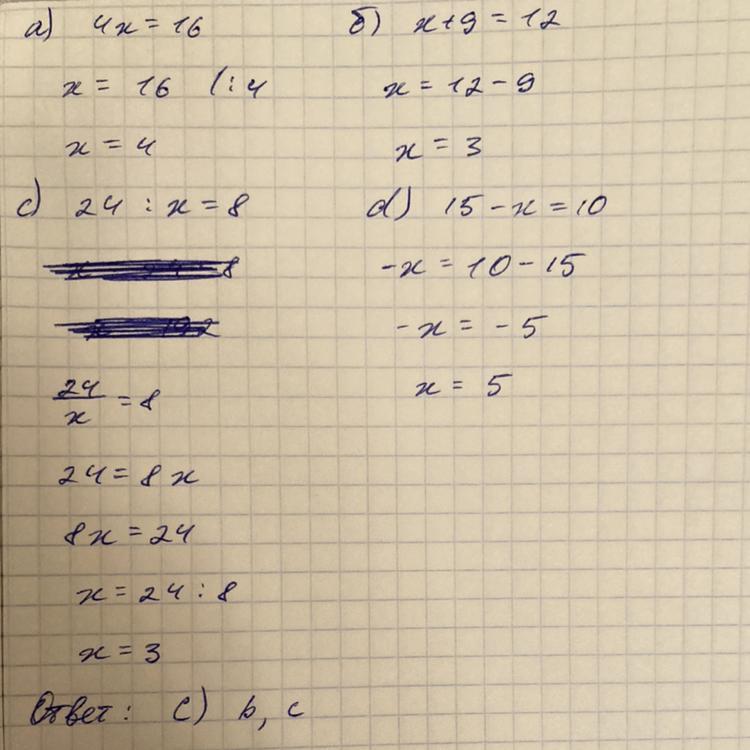 а) 4x = 16
x = 16 /: 4
x = 4
б) x + 9 = 12
x = 12 - 9
x = 3
c) 24 : x = 8
24/x = 8
24 = 8x
8x = 24
x = 24 : 8
x = 3
d) 15 - x = 10
-x = 10 - 15
-x = -5
x = 5
Ответ: C) b, c